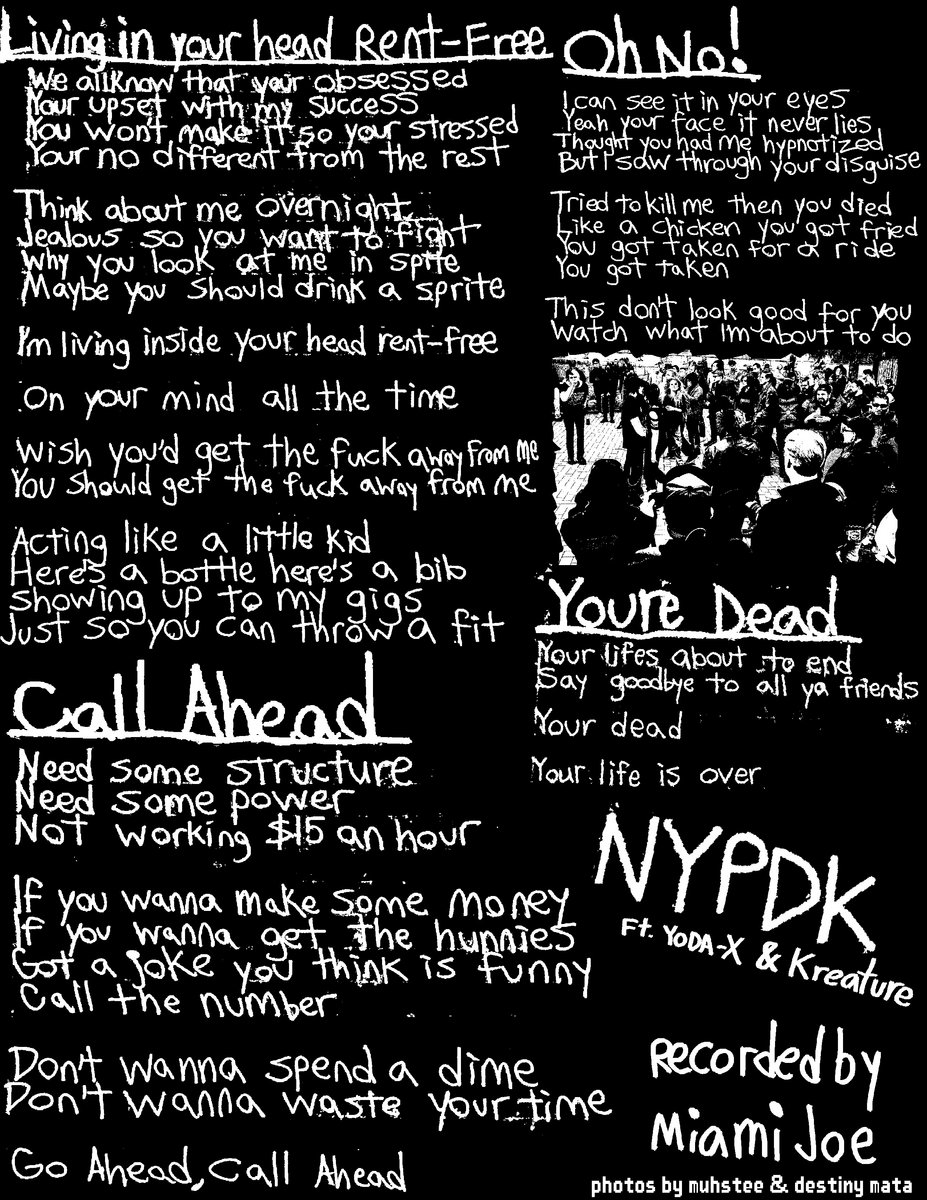 Living in your head Rent-Free
We all know that your obsessed
Your upset with my success
You wont make it so your stressed
Your no different from the rest
Think about me overnight
Jealous so you want to fight
Why you look at me in spite
Maybe you should drink a sprite
I'm living inside your head rent-free
On your mind all the time
Wish you'd get the fuck away from me
You should get the fuck away from me
Acting like a little kid
Here's a bottle here's a bib
Showing up to my gigs
Just so you can throw a fit
Call Ahead
Need some structure
Need some power
Not working $15 an hour
If you wanna make some money
If you wanna get the hunnies
Got a joke you think is funny
Call the number
Don't wanna spend a dime
Don't wanna waste your time
Go Ahead, Call Ahead
Oh No!
I can see it in your eyes
Yeah your face it never lies
Thought you had me hypnotized
But I saw through your disguise
Tried to kill me then you died
Like a chicken you got fried
You got taken for a ride
You got taken
This don't look good for you
Watch what I'm about to do
Youre Dead
Your lifes about to end
Say goodbye to all ya friends
Your dead
Your life is over
NYPDK
Ft. YODA-X & Kreature
Recorded by
Miami Joe
photos by muhstee & destiny mata